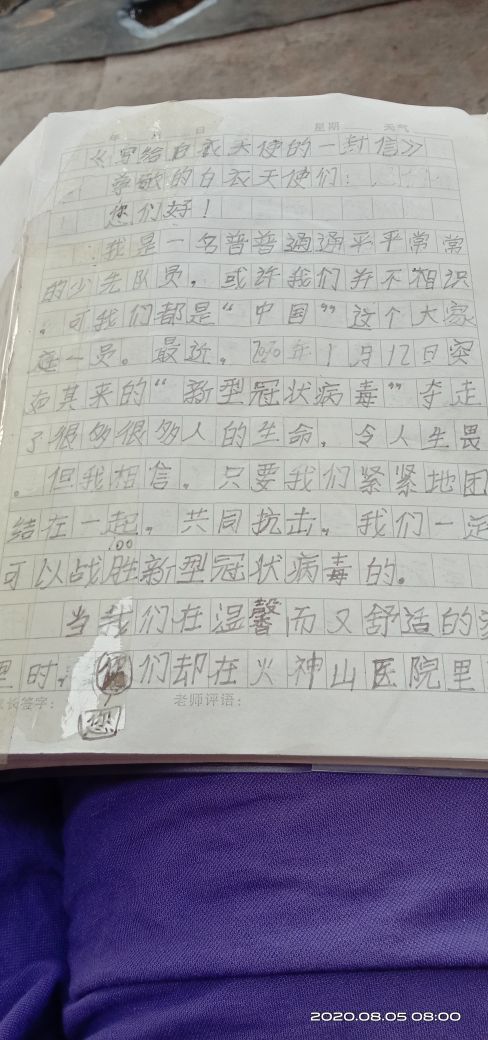 年 月 日 星期 天气
《写给白衣天使的一封信》
尊敬的白衣天使们：
您们好！
我是一名普普通通平平常常
的少先队员，或许我们并不相识
，可我们都是“中国”这个大家
庭一员。最近，2020年1月12日突
如其来的“新型冠状病毒”夺走
了很多很多人的生命，令人生畏
。但我相信，只要我们紧紧地团
结在一起，共同抗击，我们一定
可以战胜新型冠状病毒的。
当我们在温馨而又舒适的家
里时，您们却在火神山医院里
家长签字： 老师评语：
您
2020.08.05 08:00